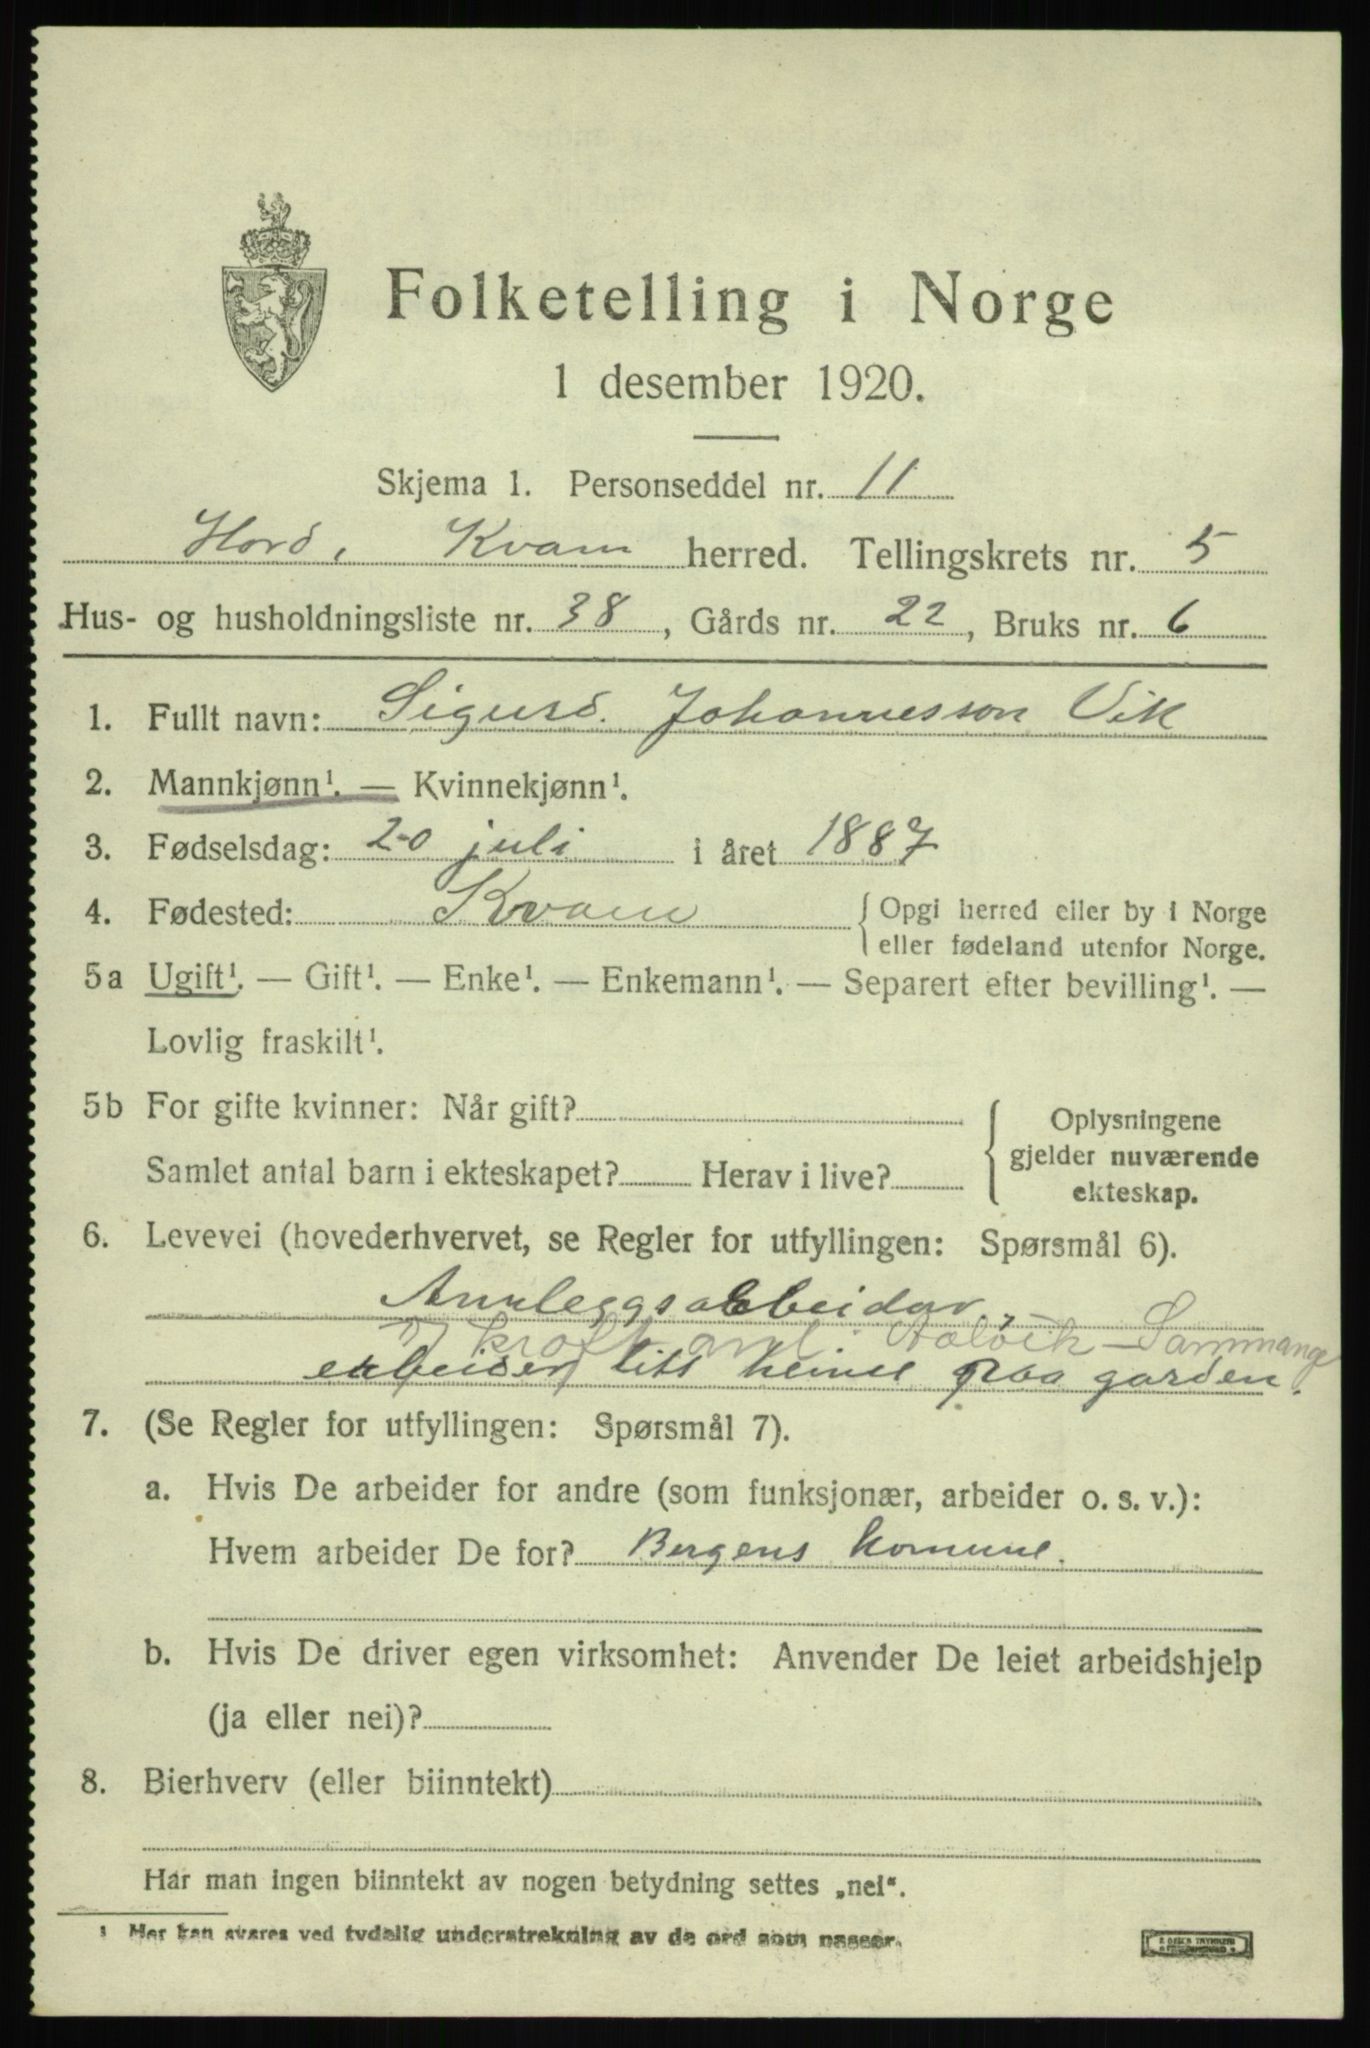 Folketelling i Norge
1 desember 1920.
Skjema 1. Personseddel nr. 11
Hord, Kvam herred. Tellingskrets nr. 5
Hus- og husholdningsliste nr. 38, Gårds nr. 22, Bruks nr. 6
1. Fullt navn: Sigurd. Johannesson Vik
2. Mannkjønn¹. — Kvinnekjønn¹.
3. Fødselsdag: 20 juli i året 1887
4. Fødested: Kvam { Opgi herred eller by i Norge
eller fødeland utenfor Norge.
5a Ugift¹. — Gift¹. — Enke¹. — Enkemann¹. — Separert efter bevilling¹. —
Lovlig fraskilt¹.
5b For gifte kvinner: Når gift?
Samlet antal barn i ekteskapet? Herav i live?
{ Oplysningene
gjelder nuværende
ekteskap.
6. Levevei (hovederhvervet, se Regler for utfyllingen: Spørsmål 6).
Anleggsarbeidar,
kraft anl. Samnanger
arbeider litt heime paa garden.
7. (Se Regler for utfyllingen: Spørsmål 7).
a. Hvis De arbeider for andre (som funksjonær, arbeider o. s. v.):
Hvem arbeider De for? Bergens komune.
b. Hvis De driver egen virksomhet: Anvender De leiet arbeidshjelp
(ja eller nei)?
8. Bierhverv (eller biinntekt)
Har man ingen biinntekt av nogen betydning settes „nei“.
¹ Her kan svares ved tydelig understrekning av de ord som passer.